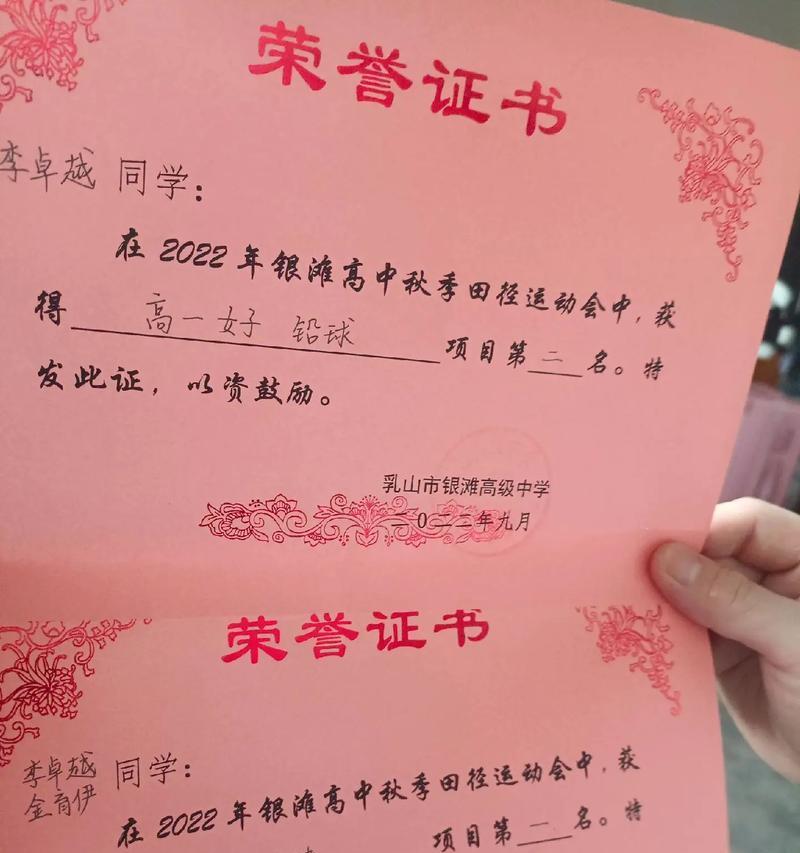 荣誉证书
李卓越 同学：
在2022年银滩高中秋季田径运动会中，获
得 高一女子 铅球 项目第 二 名。特
发此证，以资鼓励。
乳山市银滩高级中学
二〇二二年九月
荣誉证书
李卓越 同学：
金育伊
在2022年银滩高中秋季田径运动会中，获
项目第 一 名。特